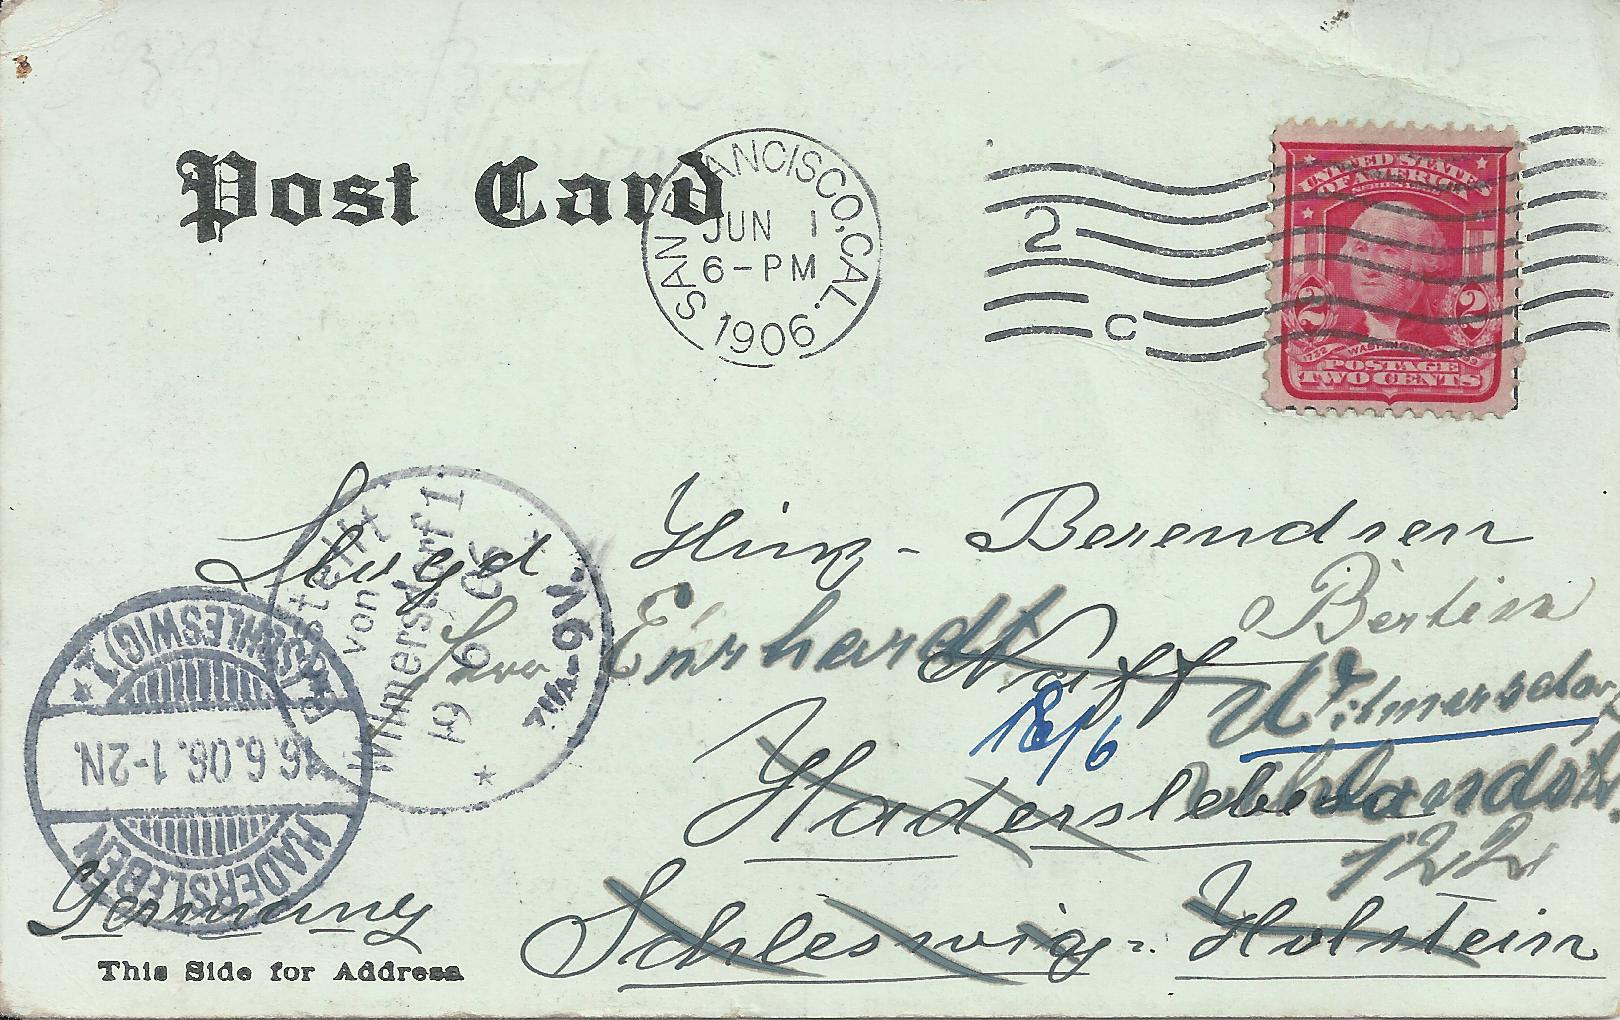 Post Card
SAN FRANCISCO, CAL.
JUN 1
6-PM
1906
2
C
UNITED STATES
OF AMERICA
2 2
1732 WASHINGTON
POSTAGE
TWO CENTS
Hinz - Berendsen
Berlin
Wilmersdorf
18/6
Hadersleben
122
Germany
Schleswig-Holstein
Bestellt
von
Wilmersdorf 1.
19 6 06
7½-9 V.
HADERSLEBEN
(SCHLESWIG) 1
16.6.06. 1-2N.
This Side for Address